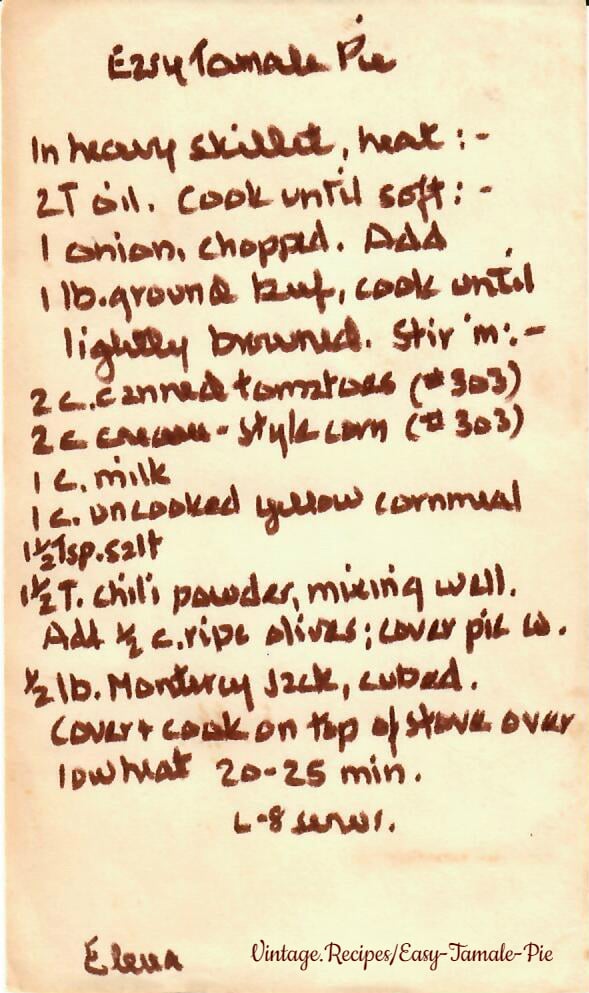 Easy Tamale Pie
In heavy skillet, heat :-
2T oil. Cook until soft : -
1 onion, chopped. Add
1 lb. ground beef, cook until
lightly browned. Stir 'm :-
2 c. canned tomatoes (#303)
2 c cream-style corn (#303)
1 c. milk
1 c. uncooked yellow cornmeal
1½ Tsp. salt
1½ T. chili powder, mixing well.
Add ½ c. ripe olives; cover pie w.
½ lb. Monterey Jack, cubed.
Cover + cook on top of stove over
low heat 20-25 min.
6-8 serves.
Elena
Vintage.Recipes/Easy-Tamale-Pie